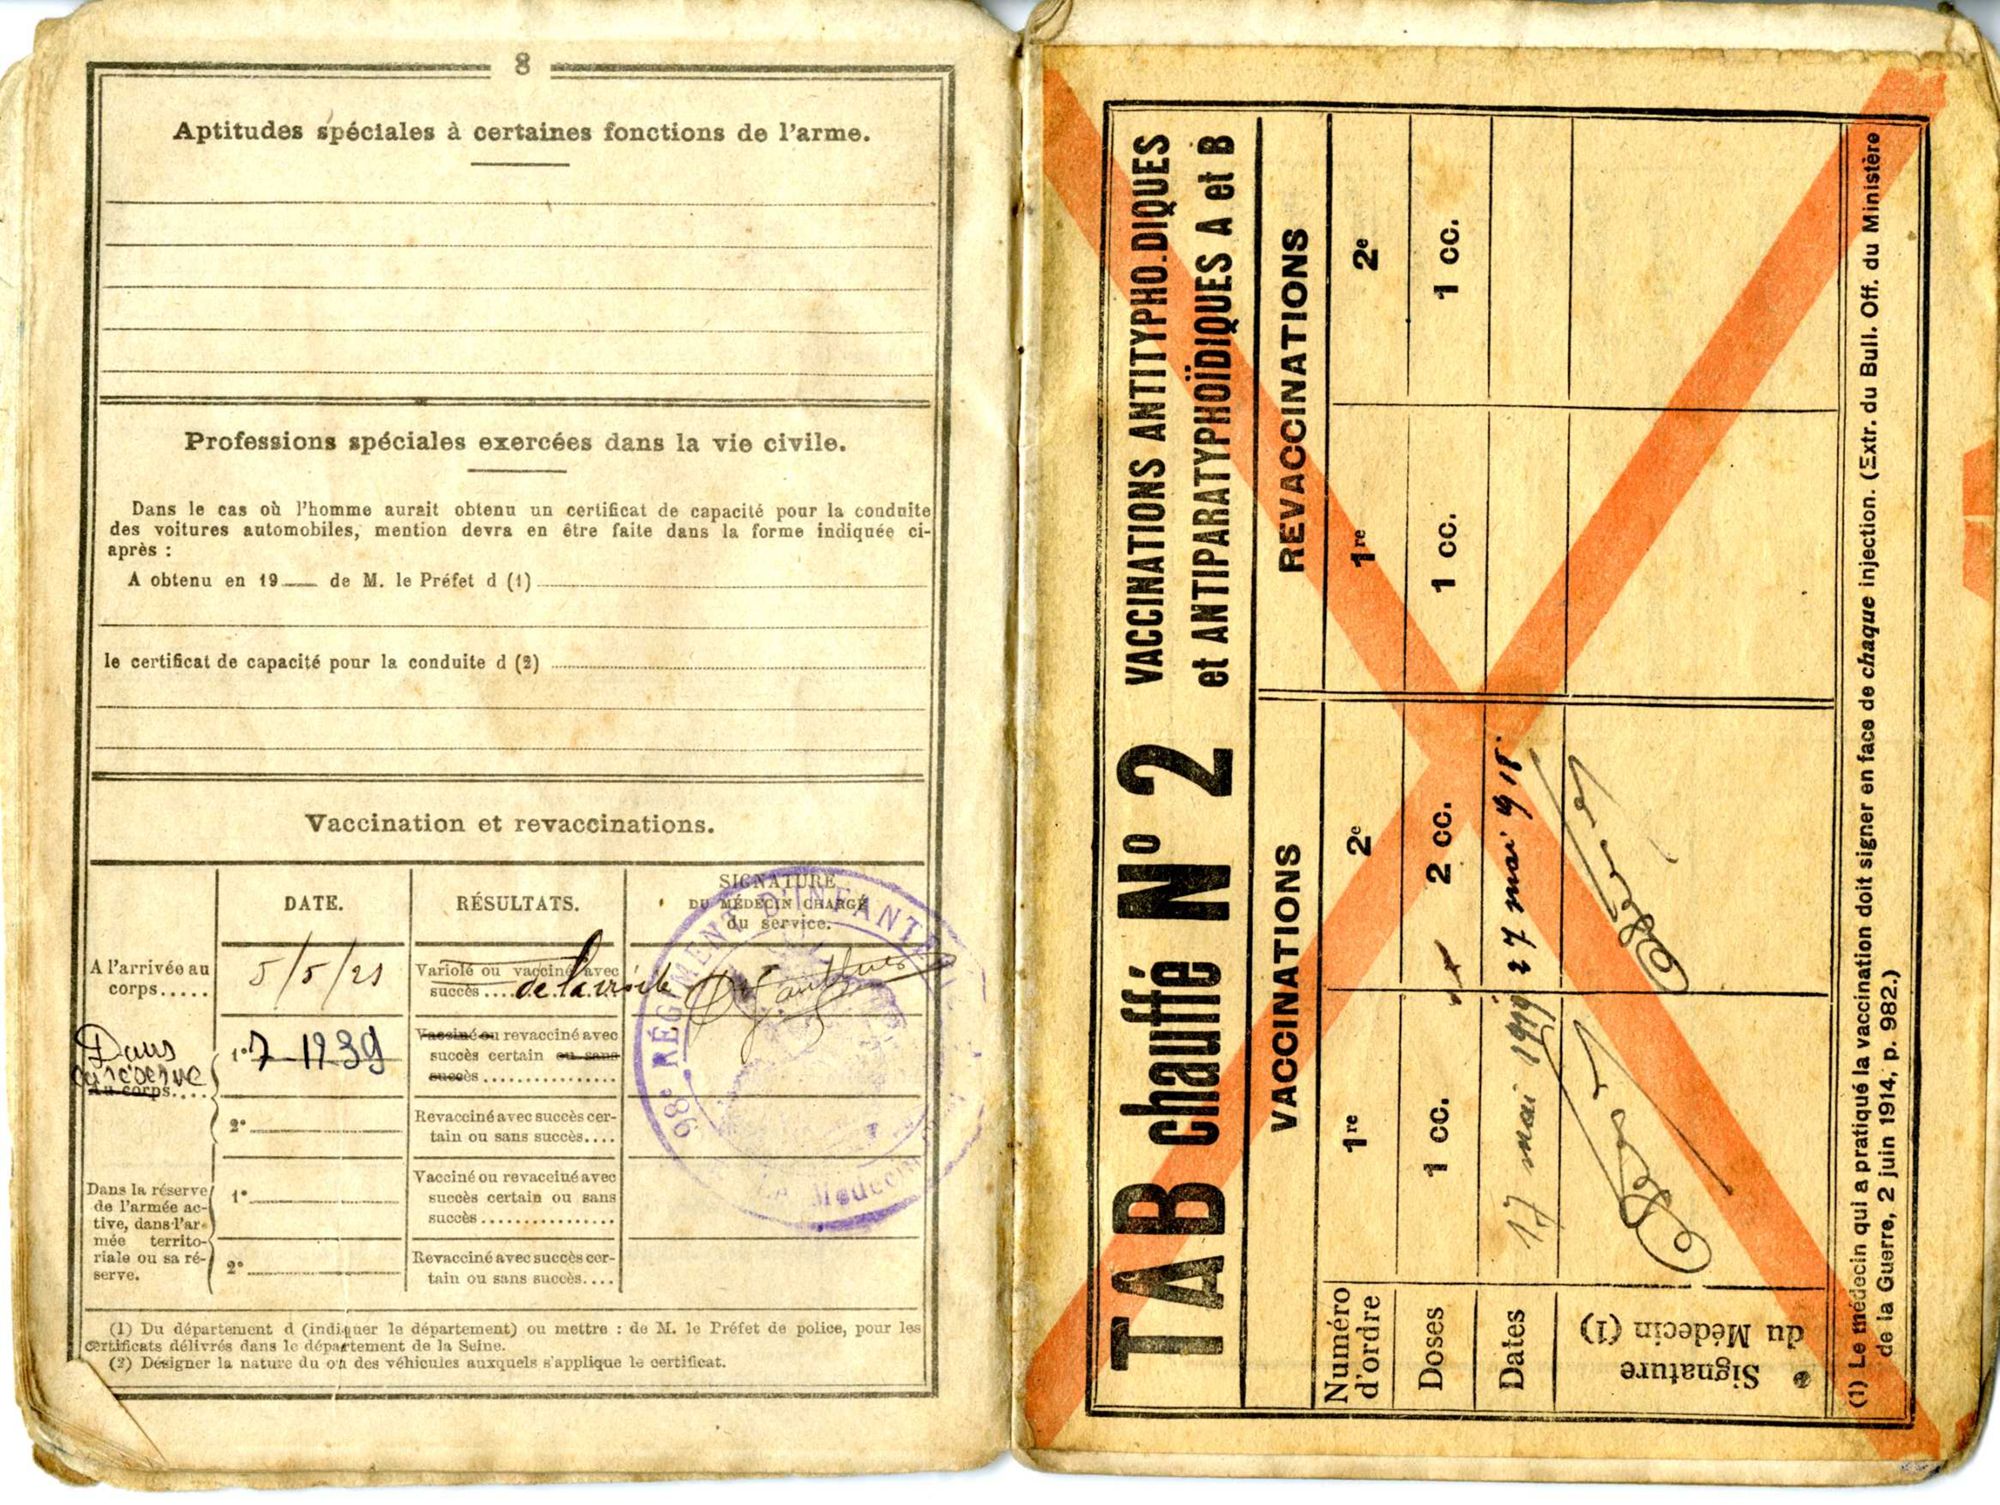 8
Aptitudes spéciales à certaines fonctions de l'arme.
Professions spéciales exercées dans la vie civile.
Dans le cas où l'homme aurait obtenu un certificat de capacité pour la conduite
des voitures automobiles, mention devra en être faite dans la forme indiquée ci-
après :
A obtenu en 19 de M. le Préfet d (1)
le certificat de capacité pour la conduite d (2)
Vaccination et revaccinations.
DATE.
RÉSULTATS.
SIGNATURE
DU MÉDECIN CHARGÉ
du service.
A l'arrivée au
corps.....
5/5/21
Variolé ou vacciné avec
succès....
Dans
la réserve
Au corps....
1° 7-1939
Vacciné ou revacciné avec
succès certain ou sans
succès................
2°
Revacciné avec succès cer-
tain ou sans succès....
Dans la réserve
de l'armée ac-
tive, dans l'ar-
mée territo-
riale ou sa ré-
serve.
1°
Vacciné ou revacciné avec
succès certain ou sans
succès................
2°
Revacciné avec succès cer-
tain ou sans succès....
98e RÉGIMENT D'INFANTERIE
Le Médecin
(1) Du département d (indiquer le département) ou mettre : de M. le Préfet de police, pour les
certificats délivrés dans le département de la Seine.
(2) Désigner la nature du ou des véhicules auxquels s'applique le certificat.
TAB chauffé N° 2
VACCINATIONS ANTITYPHO.DIQUES
et ANTIPARATYPHOÏDIQUES A et B
VACCINATIONS
REVACCINATIONS
Numéro
d'ordre
1re
2e
1re
2e
Doses
1 cc.
2 cc.
1 cc.
1 cc.
Dates
17 mai 1919
27 mai 918
Signature
du Médecin (1)
(1) Le médecin qui a pratiqué la vaccination doit signer en face de chaque injection. (Extr. du Bull. Off. du Ministère
de la Guerre, 2 juin 1914, p. 982.)